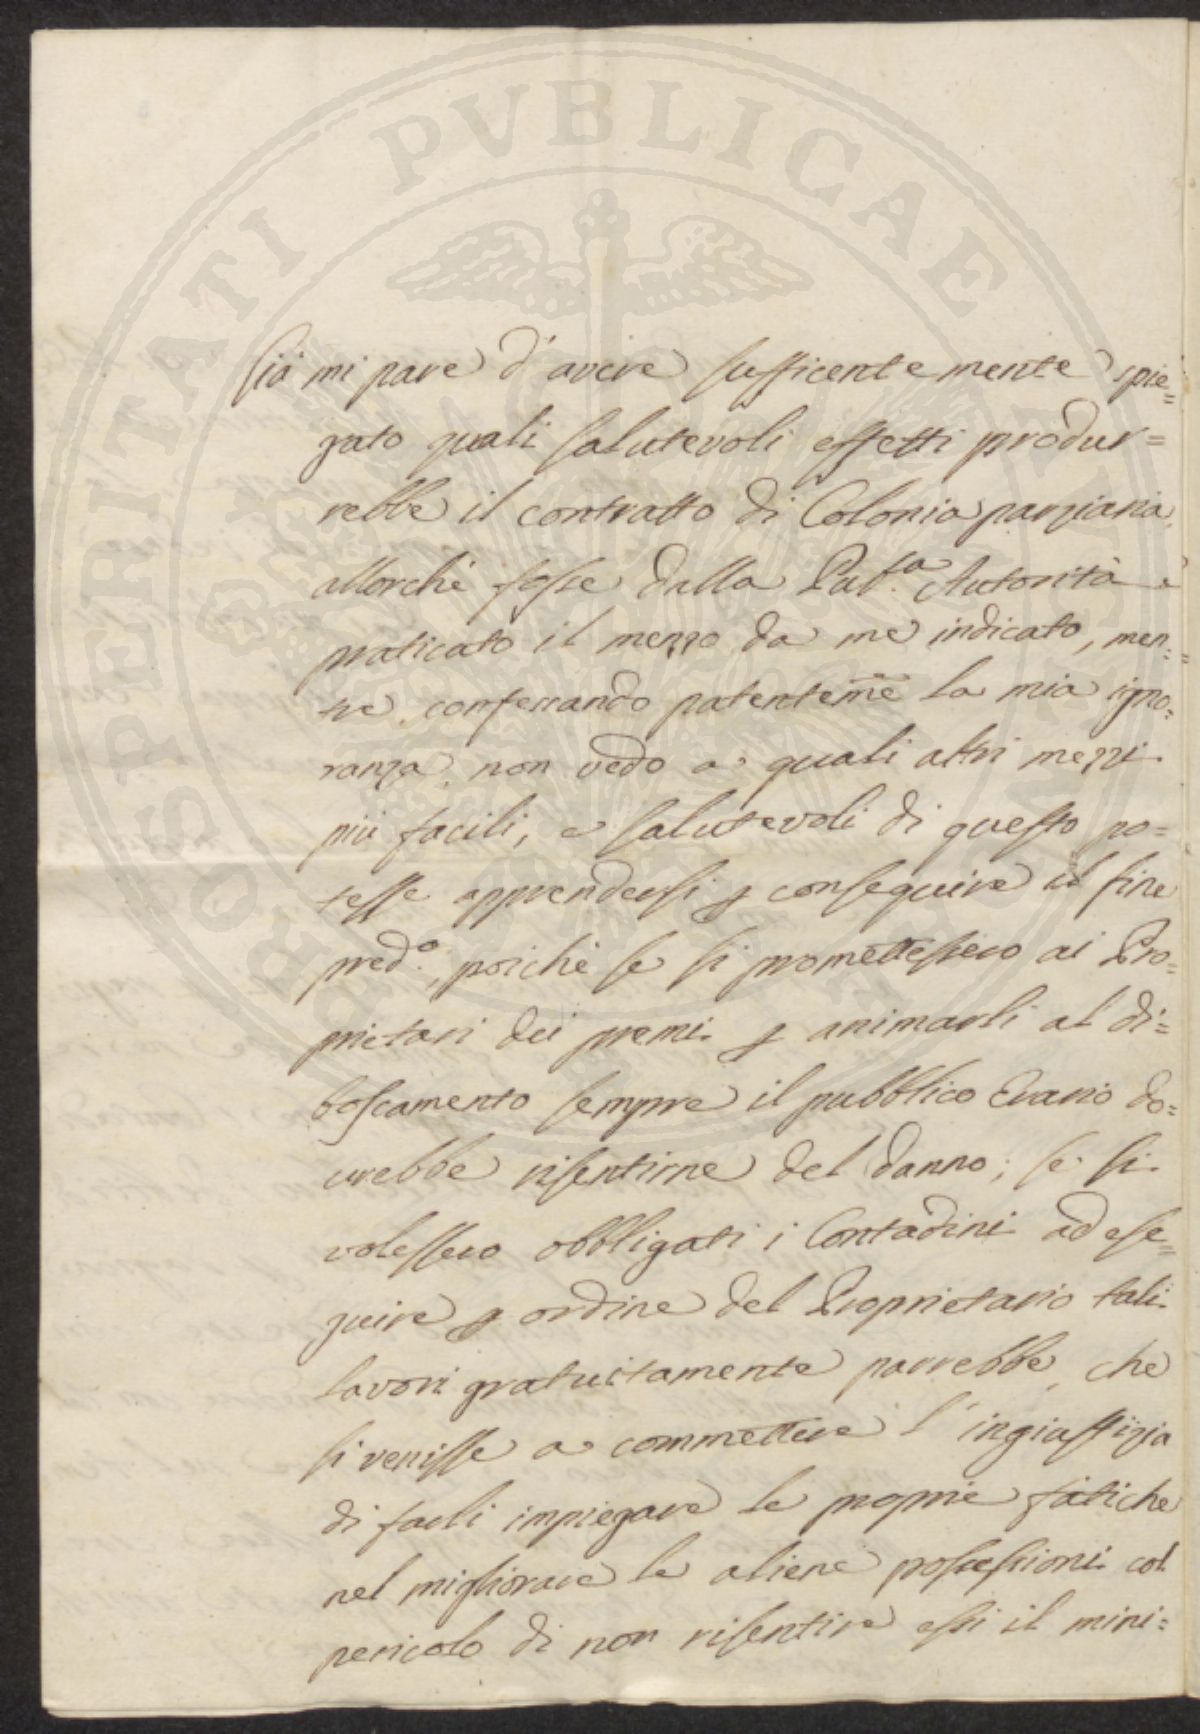 PROSPERITATI PVBLICAE AVGENDAE
Già mi pare d'avere sufficentemente spie=
gato quali salutevoli effetti produr=
rebbe il contratto di Colonia parziaria,
allorchè fosse dalla Pub.a Autorità
praticato il mezzo da me indicato, men=
tre confessando patentem̃e la mia igno=
ranza, non vedo a quali altri mezzi
più facili, e salutevoli di questo po=
tesse apprendersi p conseguire il fine
pred.o, poichè se si promettessero ai Pro=
prietari dei premi p animarli al di=
boscamento sempre il pubblico Erario do=
vrebbe risentirne del danno; se si
volessero obbligati i Contadini ad ese=
guire p ordine del Proprietario tali
lavori gratuitamente parrebbe, che
si venisse a commettere l'ingiustizia
di farli impiegare le proprie fatiche
nel migliorare le aliene possessioni col
pericolo di non risentire essi il mini=